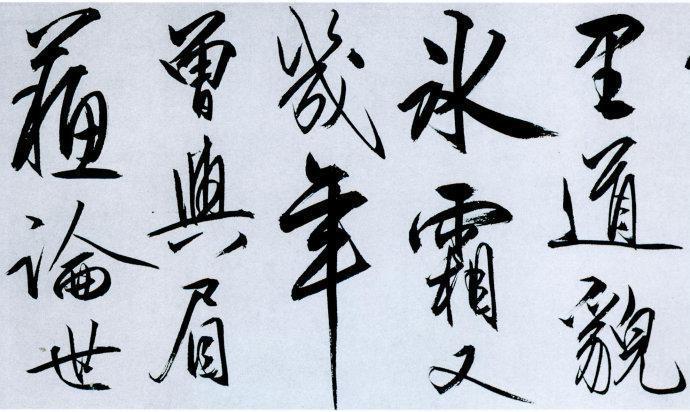 里道貌
氷霜又
幾年
曾與眉
蘓論世